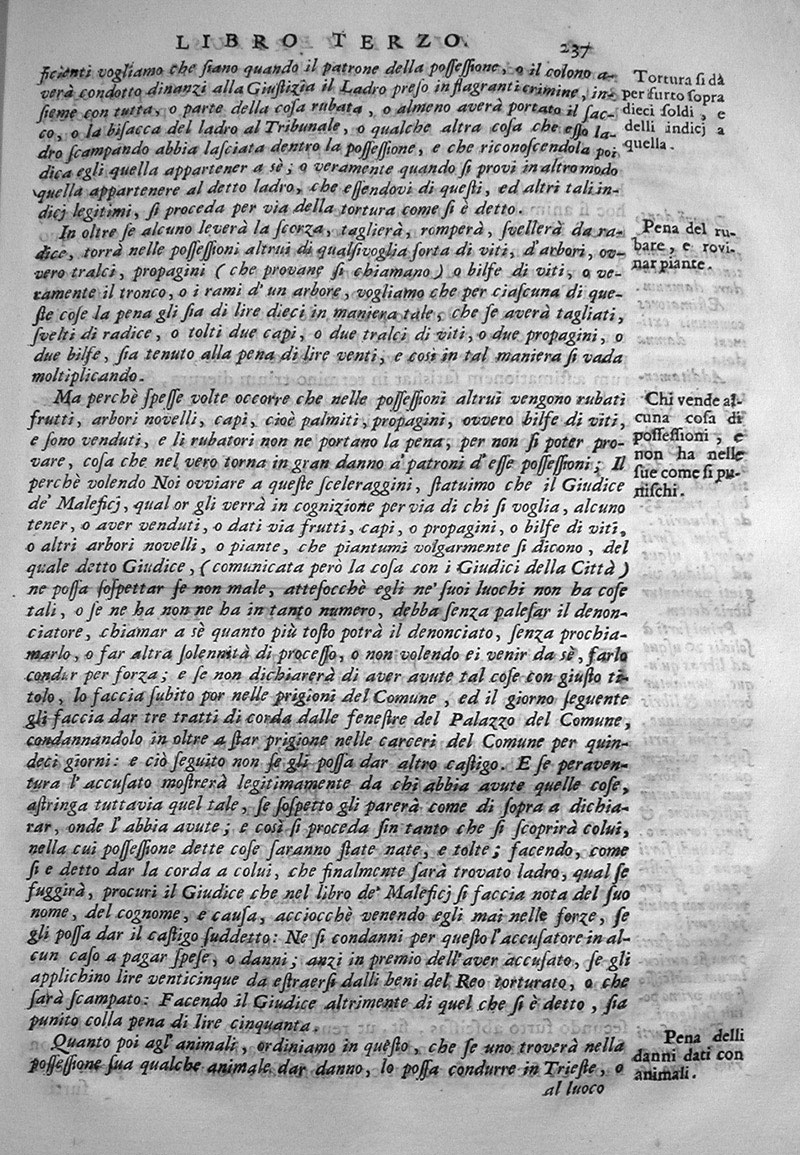 LIBRO TERZO. 237
ficienti vogliamo che ſiano quando il patrone della poſſeſſione, o il colono a-
verà condotto dinanzi alla Giuſtizia il Ladro preſo in flagranti crimine, in-
ſieme con tutta, o parte della coſa rubata, o almeno averà portato il ſac-
co, o la biſacca del ladro al Tribunale, o qualche altra coſa che eſſo la-
dro ſcampando abbia laſciata dentro la poſſeſſione, e che riconoſcendola poi
dica egli quella appartener a sè; o veramente quando ſi provi in altro modo
quella appartenere al detto ladro, che eſſendovi di queſti, ed altri tali in-
dicj legitimi, ſi proceda per via della tortura come ſi è detto.
Tortura ſi dà
per furto ſopra
dieci ſoldi, e
delli indicj a
quella.
In oltre ſe alcuno leverà la ſcorza, taglierà, romperà, ſvellerà da ra-
dice, torrà nelle poſſeſſioni altrui di qualſivoglia ſorta di viti, d'arbori, ov-
vero tralci, propagini (che provane ſi chiamano) o bilſe di viti, o ve-
ramente il tronco, o i rami d'un arbore, vogliamo che per ciaſcuna di que-
ſte coſe la pena gli ſia di lire dieci in maniera tale, che ſe averà tagliati,
ſvelti di radice, o tolti due capi, o due tralci di viti, o due propagini, o
due bilſe, ſia tenuto alla pena di lire venti, e così in tal maniera ſi vada
moltiplicando.
Pena del ru-
bare, e rovi-
nar piante.
Ma perchè ſpeſſe volte occorre che nelle poſſeſſioni altrui vengono rubati
frutti, arbori novelli, capi, cioè palmiti, propagini, ovvero bilſe di viti,
e ſono venduti, e li rubatori non ne portano la pena, per non ſi poter pro-
vare, coſa che nel vero torna in gran danno a' patroni d'eſſe poſſeſſioni; Il
perchè volendo Noi ovviare a queſte ſceleraggini, ſtatuimo che il Giudice
de' Maleficj, qual or gli verrà in cognizione per via di chi ſi voglia, alcuno
tener, o aver venduti, o dati via frutti, capi, o propagini, o bilſe di viti,
o altri arbori novelli, o piante, che piantumi volgarmente ſi dicono, del
quale detto Giudice, (comunicata però la coſa con i Giudici della Città)
ne poſſa ſoſpettar ſe non male, atteſocchè egli ne' ſuoi luochi non ha coſe
tali, o ſe ne ha non ne ha in tanto numero, debba ſenza paleſar il denon-
ciatore, chiamar a sè quanto più toſto potrà il denonciato, ſenza prochia-
marlo, o far altra ſolennità di proceſſo, o non volendo ei venir da sè, farlo
condur per forza; e ſe non dichiarerà di aver avute tal coſe con giuſto ti-
tolo, lo faccia ſubito por nelle prigioni del Comune, ed il giorno ſeguente
gli faccia dar tre tratti di corda dalle feneſtre del Palazzo del Comune,
condannandolo in oltre a ſtar prigione nelle carceri del Comune per quin-
deci giorni: e ciò ſeguito non ſe gli poſſa dar altro caſtigo. E ſe peraven-
tura l'accuſato moſtrerà legitimamente da chi abbia avute quelle coſe,
aſtringa tuttavia quel tale, ſe ſoſpetto gli parerà come di ſopra a dichia-
rar, onde l'abbia avute; e così ſi proceda ſin tanto che ſi ſcoprirà colui,
nella cui poſſeſſione dette coſe ſaranno ſtate nate, e tolte; facendo, come
ſi e detto dar la corda a colui, che finalmente ſarà trovato ladro, qual ſe
fuggirà, procuri il Giudice che nel libro de' Maleficj ſi faccia nota del ſuo
nome, del cognome, e cauſa, acciocchè venendo egli mai nelle forze, ſe
gli poſſa dar il caſtigo ſuddetto: Ne ſi condanni per queſto l'accuſatore in al-
cun caſo a pagar ſpeſe, o danni; anzi in premio dell'aver accuſato, ſe gli
applichino lire venticinque da eſtraerſi dalli beni del Reo torturato, o che
ſarà ſcampato: Facendo il Giudice altrimente di quel che ſi è detto, ſia
punito colla pena di lire cinquanta.
Chi vende al-
cuna coſa di
poſſeſſioni, e
non ha nelle
ſue come ſi pu-
niſchi.
Quanto poi agl'animali, ordiniamo in queſto, che ſe uno troverà nella
poſſeſſione ſua qualche animale dar danno, lo poſſa condurre in Trieſte, o
al luoco
Pena delli
danni dati con
animali.